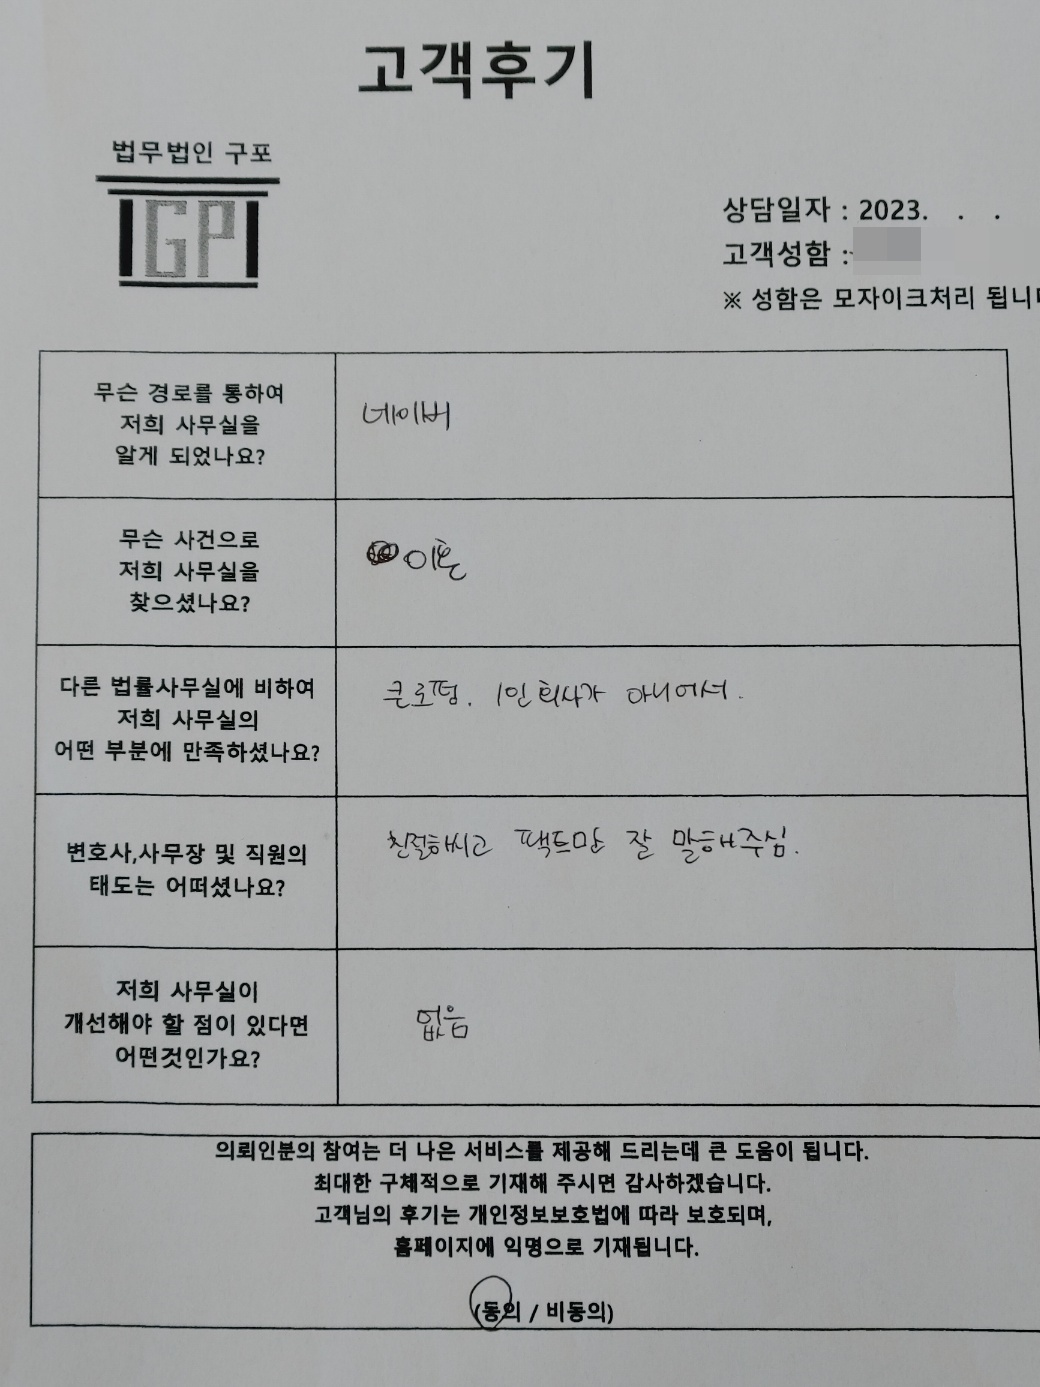 고객후기
법무법인 구포
GP
상담일자 : 2023. . .
고객성함 :
※ 성함은 모자이크처리 됩니다
무슨 경로를 통하여
저희 사무실을
알게 되었나요?
네이버
무슨 사건으로
저희 사무실을
찾으셨나요?
이혼
다른 법률사무실에 비하여
저희 사무실의
어떤 부분에 만족하셨나요?
큰로펌. 1인 회사가 아니어서.
변호사,사무장 및 직원의
태도는 어떠셨나요?
친절하시고 팩트만 잘 말해주심.
저희 사무실이
개선해야 할 점이 있다면
어떤것인가요?
없음
의뢰인분의 참여는 더 나은 서비스를 제공해 드리는데 큰 도움이 됩니다.
최대한 구체적으로 기재해 주시면 감사하겠습니다.
고객님의 후기는 개인정보보호법에 따라 보호되며,
홈페이지에 익명으로 기재됩니다.
(동의 / 비동의)